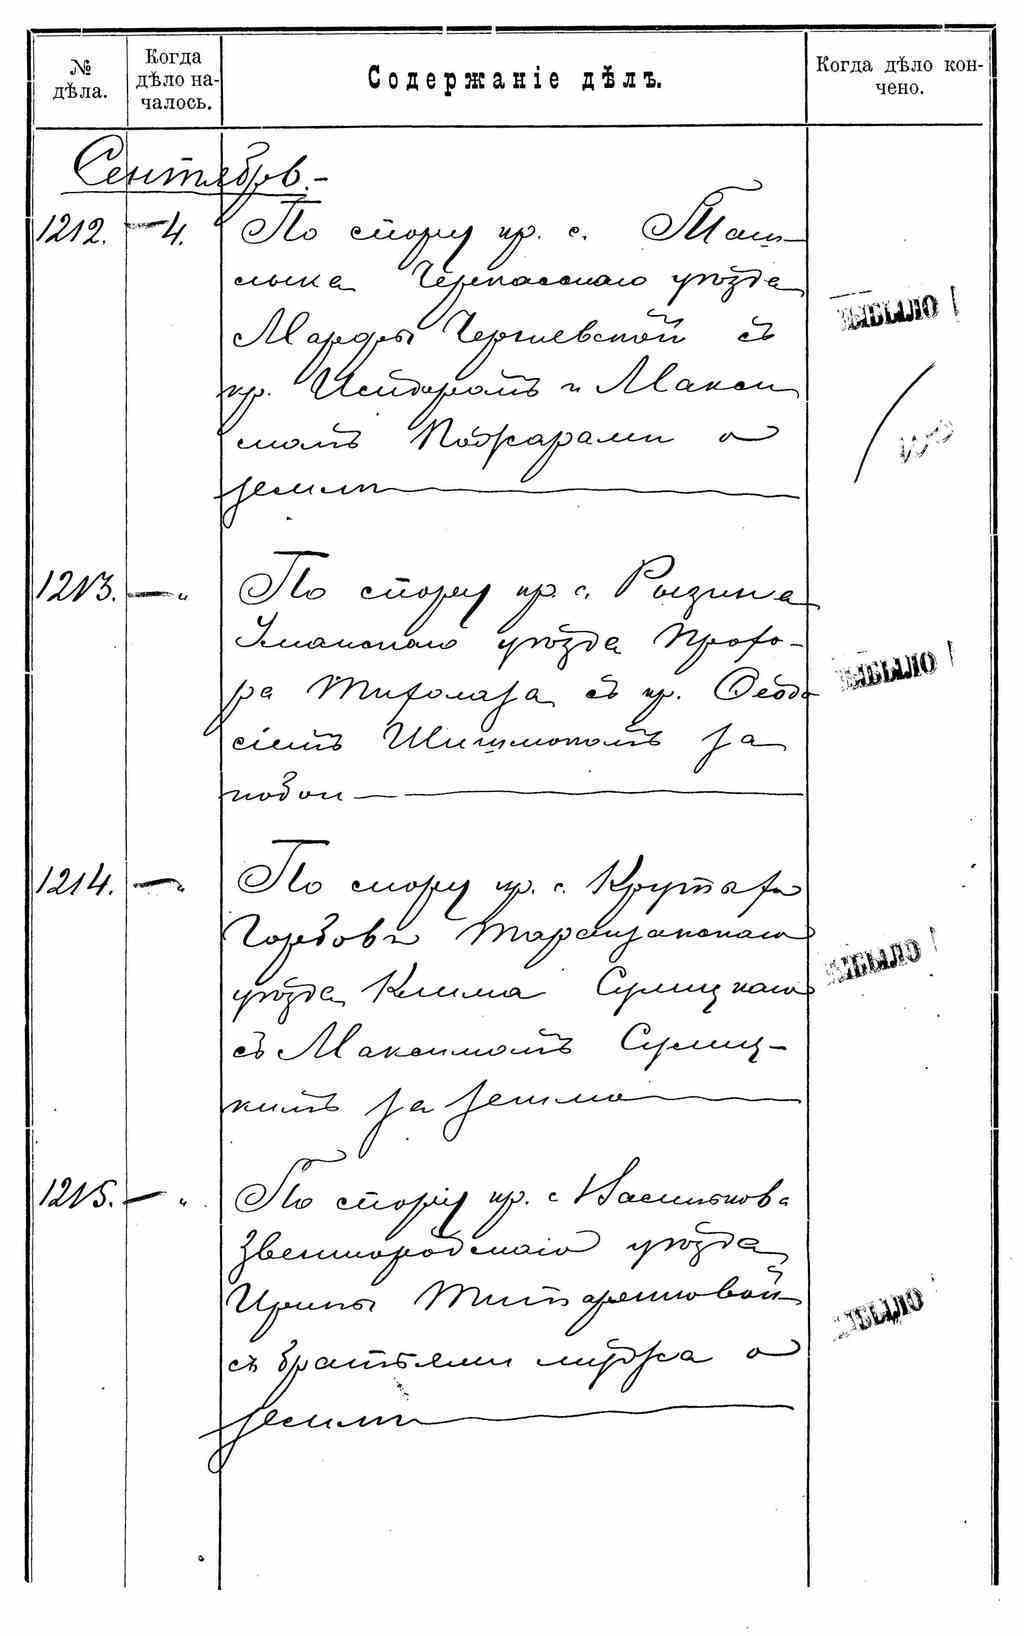 № дѣла.
Когда дѣло началось.
Содержаніе дѣлъ.
Когда дѣло кончено.
Сентябрь.-
1212. — 4. По спору кр. с. Таш-
лыка Черкасскаго уѣзда
Марфы Чергиевской съ
кр. Исидоромъ и Макси
момъ Пожарами о
землѣ
1213. — „ По спору кр. с. Рыжика
Уманскаго уѣзда Прохо-
ра съ кр. Ѳеодо
сіемъ за
побои
1214. — „ По спору кр. с. Крутыхъ
Горбовъ Таращанскаго
уѣзда Клима Сулицкаго
съ Максимомъ Сулиц-
кимъ за землю
1215. — „ По спору кр. с Васильков
Звенигородскаго уѣзда
Ирины Титаренковой
съ братьями мужа о
землѣ